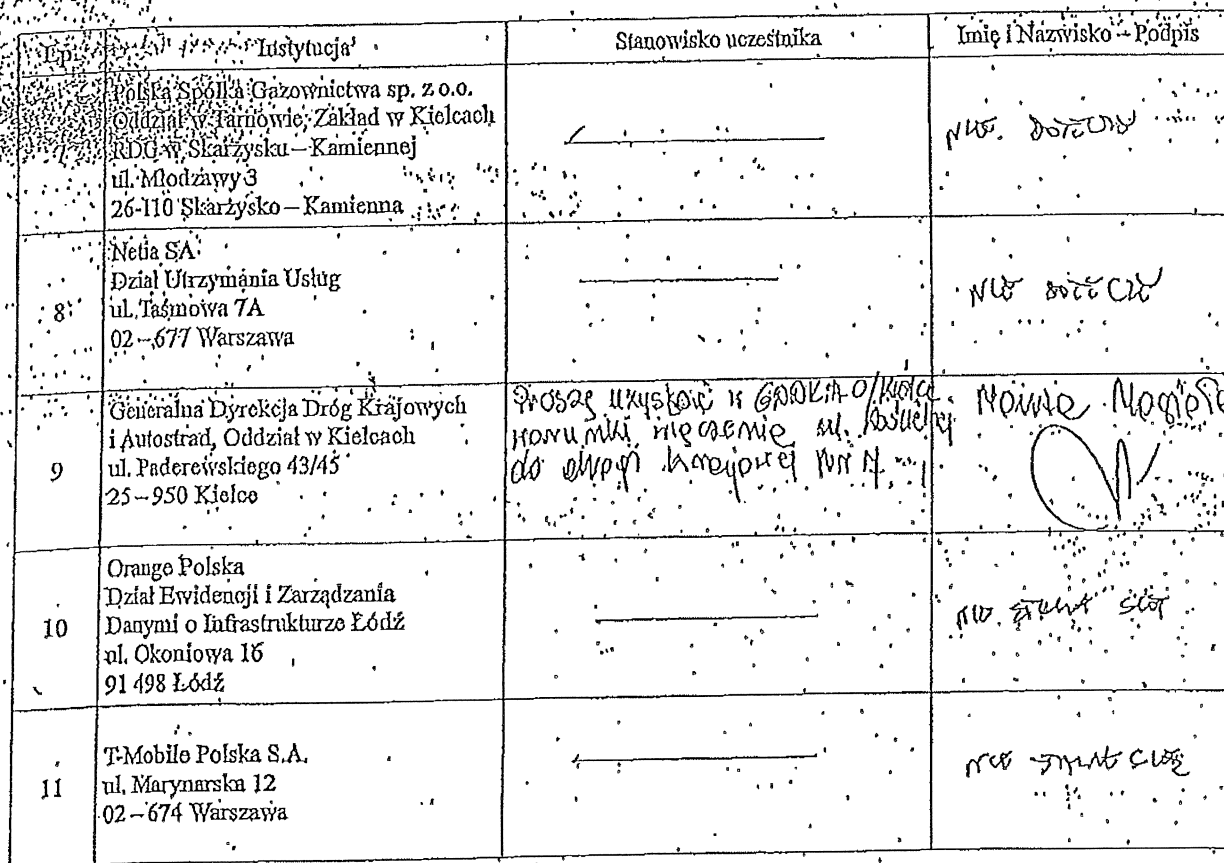 Lp. Instytucja Stanowisko uczestnika Imię i Nazwisko – Podpis
Polska Spółka Gazownictwa sp. z o.o.
Oddział w Tarnowie, Zakład w Kielcach
RDG w Skarżysku – Kamiennej
ul. Młodzawy 3
26-110 Skarżysko – Kamienna
nie dotyczy
8
Netia SA
Dział Utrzymania Usług
ul. Taśmowa 7A
02 – 677 Warszawa
nie dotyczy
9
Generalna Dyrekcja Dróg Krajowych
i Autostrad, Oddział w Kielcach
ul. Paderewskiego 43/45
25 – 950 Kielce
Proszę uzyskać w GDDKiA O/Kielce
warunki włączenia ul.
do drogi krajowej nr 7
10
Orange Polska
Dział Ewidencji i Zarządzania
Danymi o Infrastrukturze Łódź
ul. Okoniowa 16
91 498 Łódź
nie
11
T-Mobile Polska S.A.
ul. Marynarska 12
02 – 674 Warszawa
nie